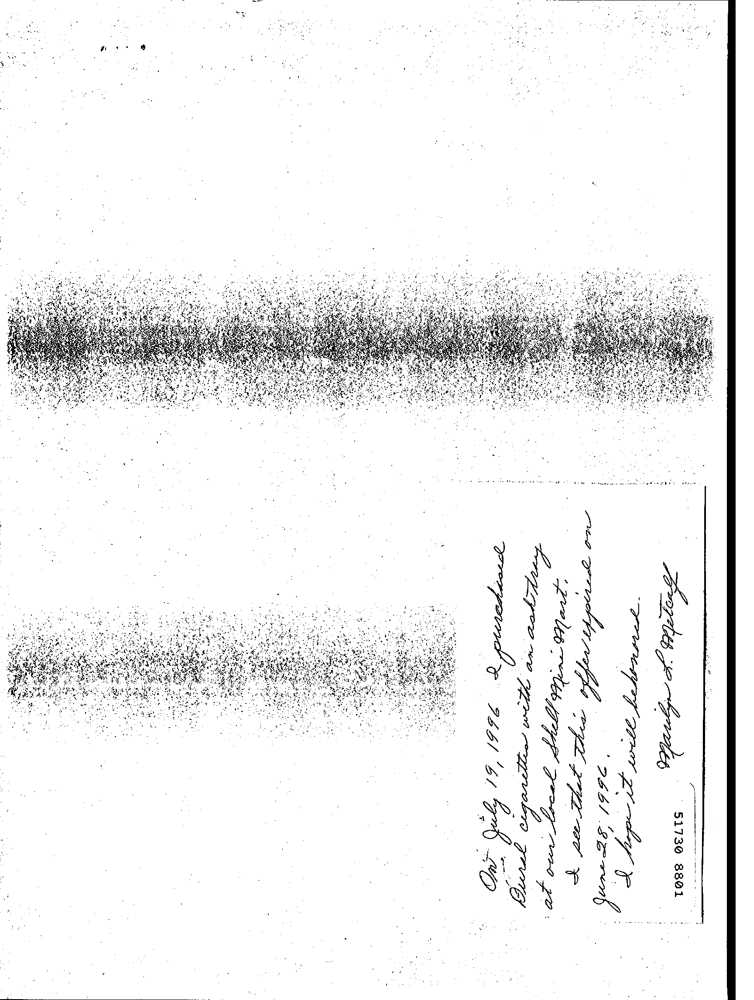 On July 19, 1996 I purchased
Dural cigarettes with an ash tray
at our local Shell Mini Mart.
I see that this offer expired on
June 28, 1996.
I hope it will be honored.
Marilyn L. Metcalf
51730 8801